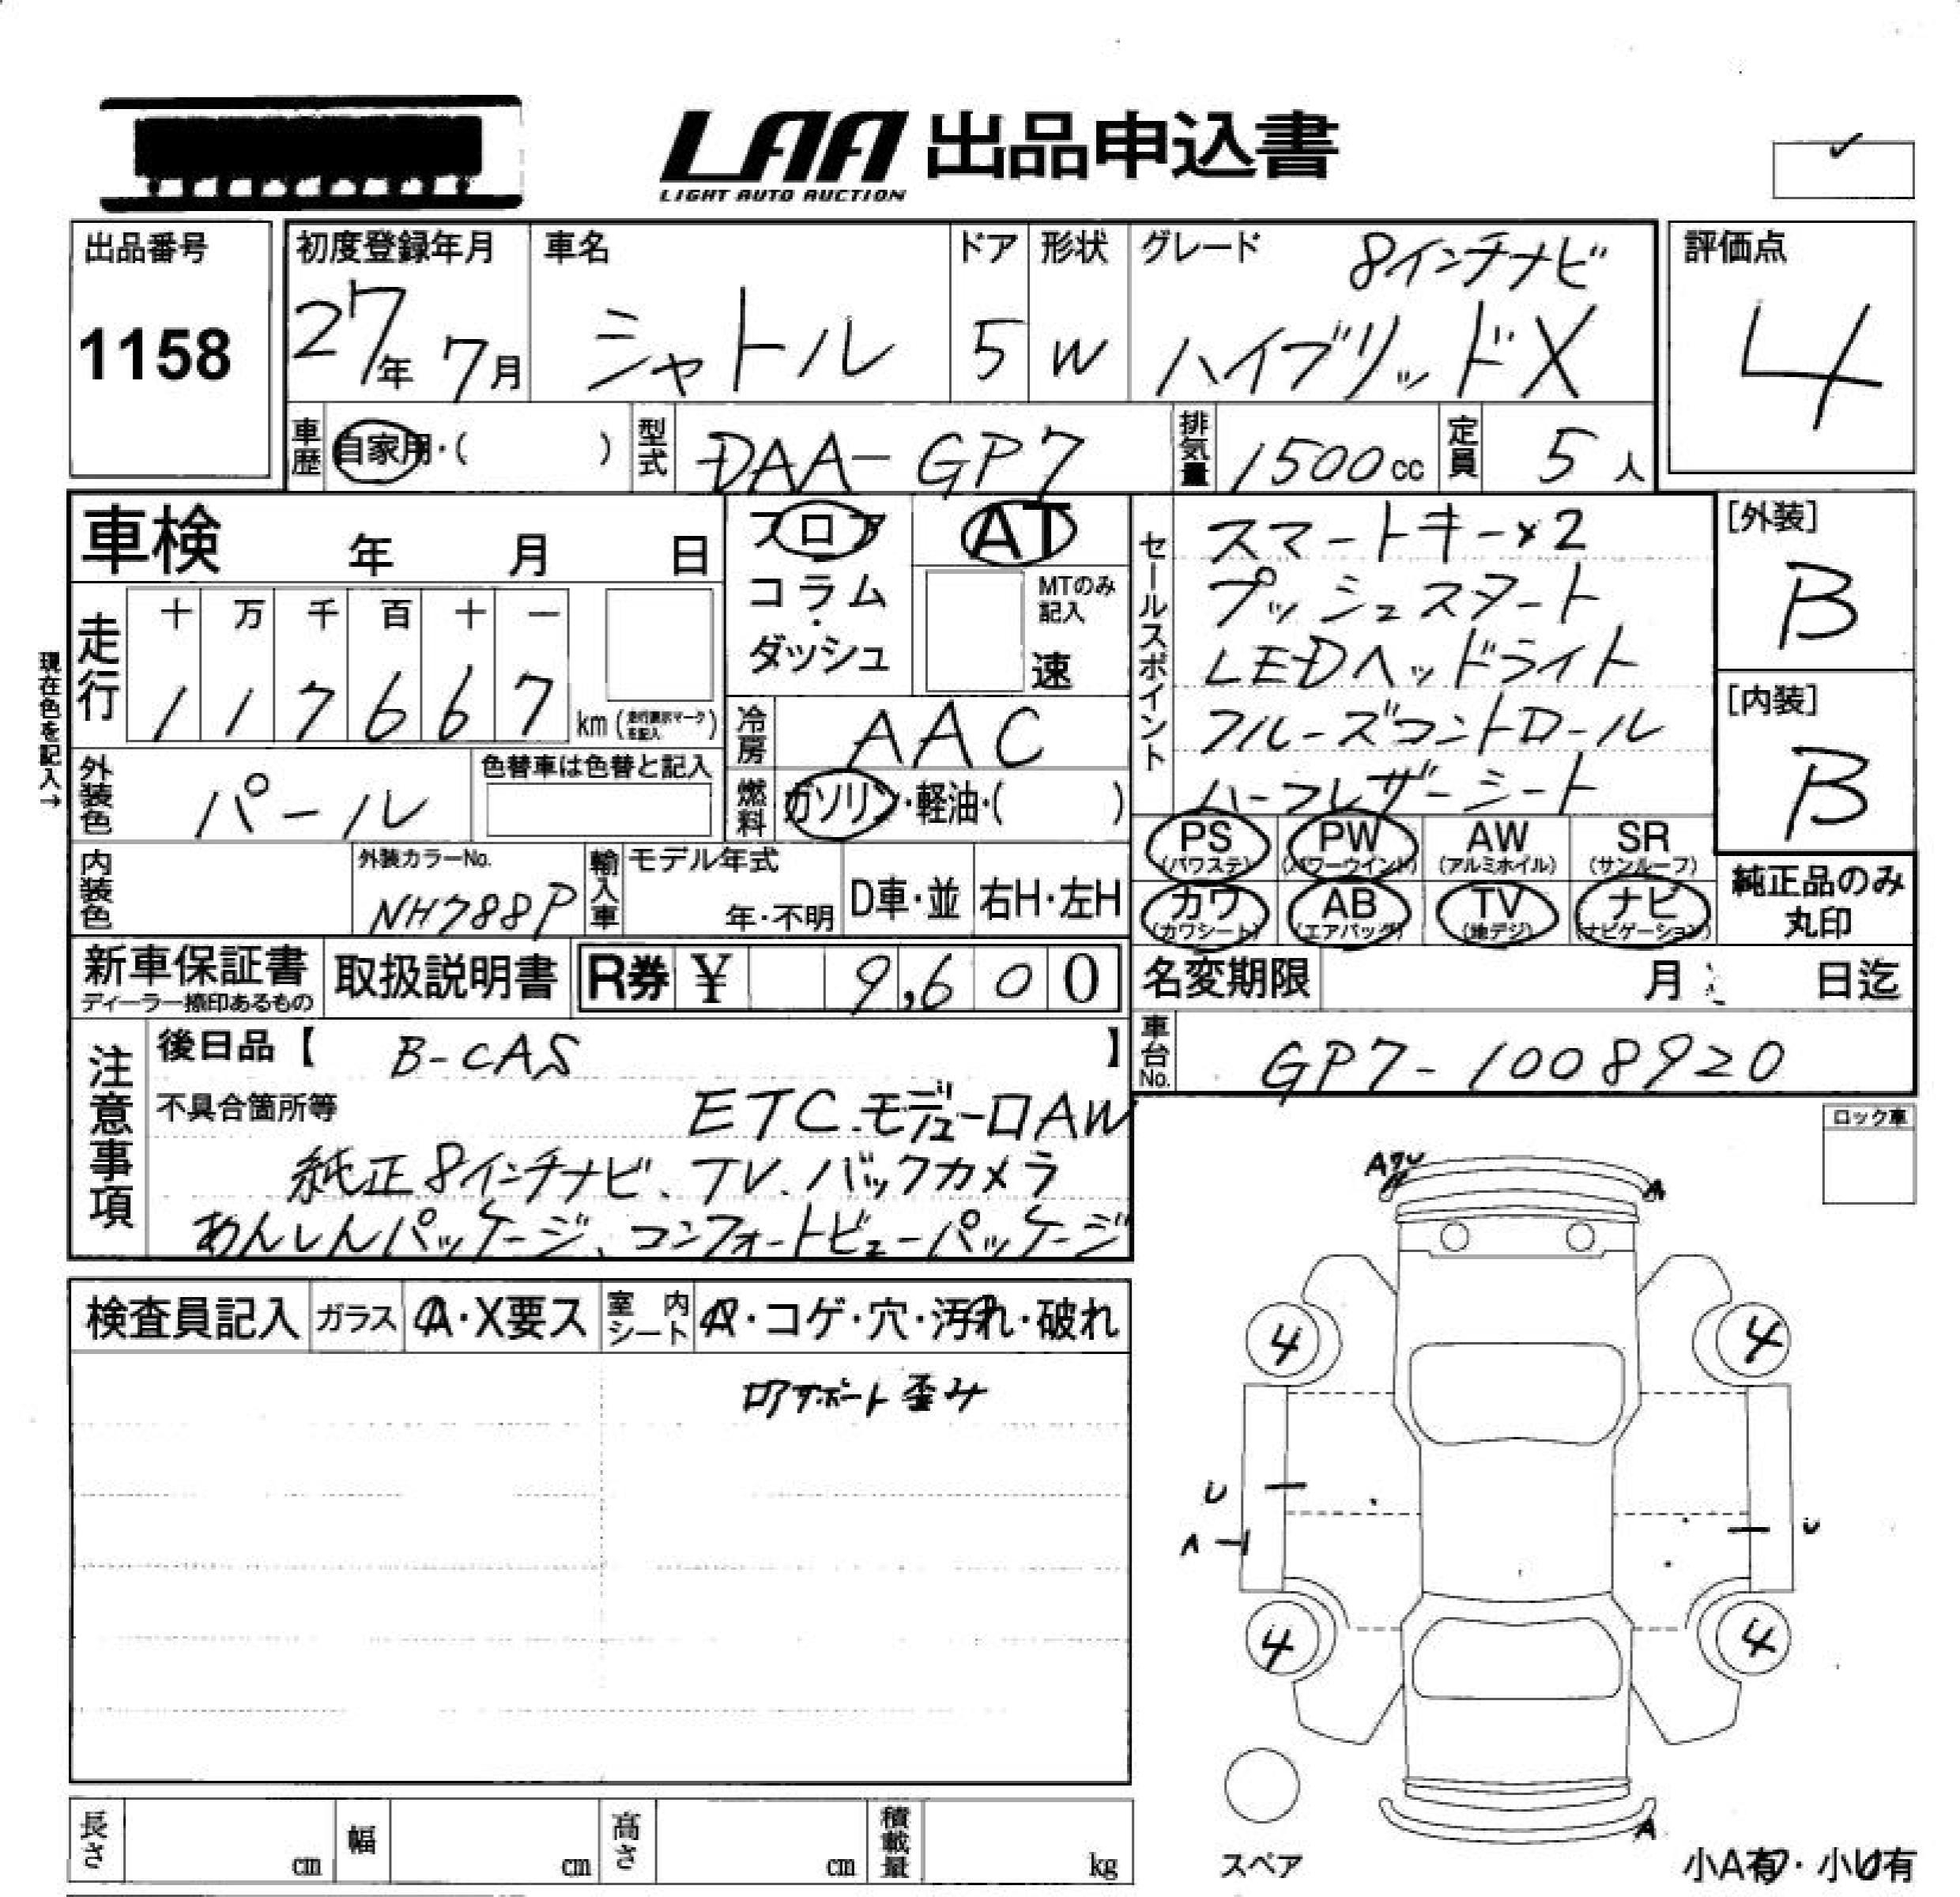 LAA 出品申込書
LIGHT AUTO AUCTION
出品番号 1158
初度登録年月 27年 7月
車名 シャトル
ドア 5
形状 W
グレード 8インチナビ
ハイブリッドX
評価点 4
車歴 自家用・( )
型式 DAA-GP7
排気量 1500cc
定員 5人
車検 年 月 日
フロア・コラム・ダッシュ
AT
MTのみ記入 速
セールスポイント
スマートキー×2
プッシュスタート
LEDヘッドライト
クルーズコントロール
ハーフレザーシート
[外装] B
[内装] B
現在色を記入→
走行 十 万 千 百 十 一
1 1 7 6 6 7 km
冷房 AAC
燃料 ガソリン・軽油・( )
外装色 パール
色替車は色替と記入
内装色
外装カラーNo. NH788P
輸入車 モデル年式 年・不明 D車・並 右H・左H
PS (パワステ) PW (パワーウインド) AW (アルミホイル) SR (サンルーフ)
カワ (カワシート) AB (エアバッグ) TV (地デジ) ナビ (ナビゲーション)
純正品のみ丸印
新車保証書 ディーラー捺印あるもの
取扱説明書
R券 ¥ 9,600
名変期限 月 日迄
車台No. GP7-1008920
注意事項
後日品【 B-CAS 】
不具合箇所等 ETC.モデューロAW
純正8インチナビ、TV、バックカメラ
あんしんパッケージ、コンフォートビューパッケージ
ロック車
検査員記入 ガラス A・X要ス 室内シート A・コゲ・穴・汚れ・破れ
ロアサポート歪み
A
4 4
U
A
U
4 4
A
スペア
小A有・小U有
長さ cm 幅 cm 高さ cm 積載量 kg